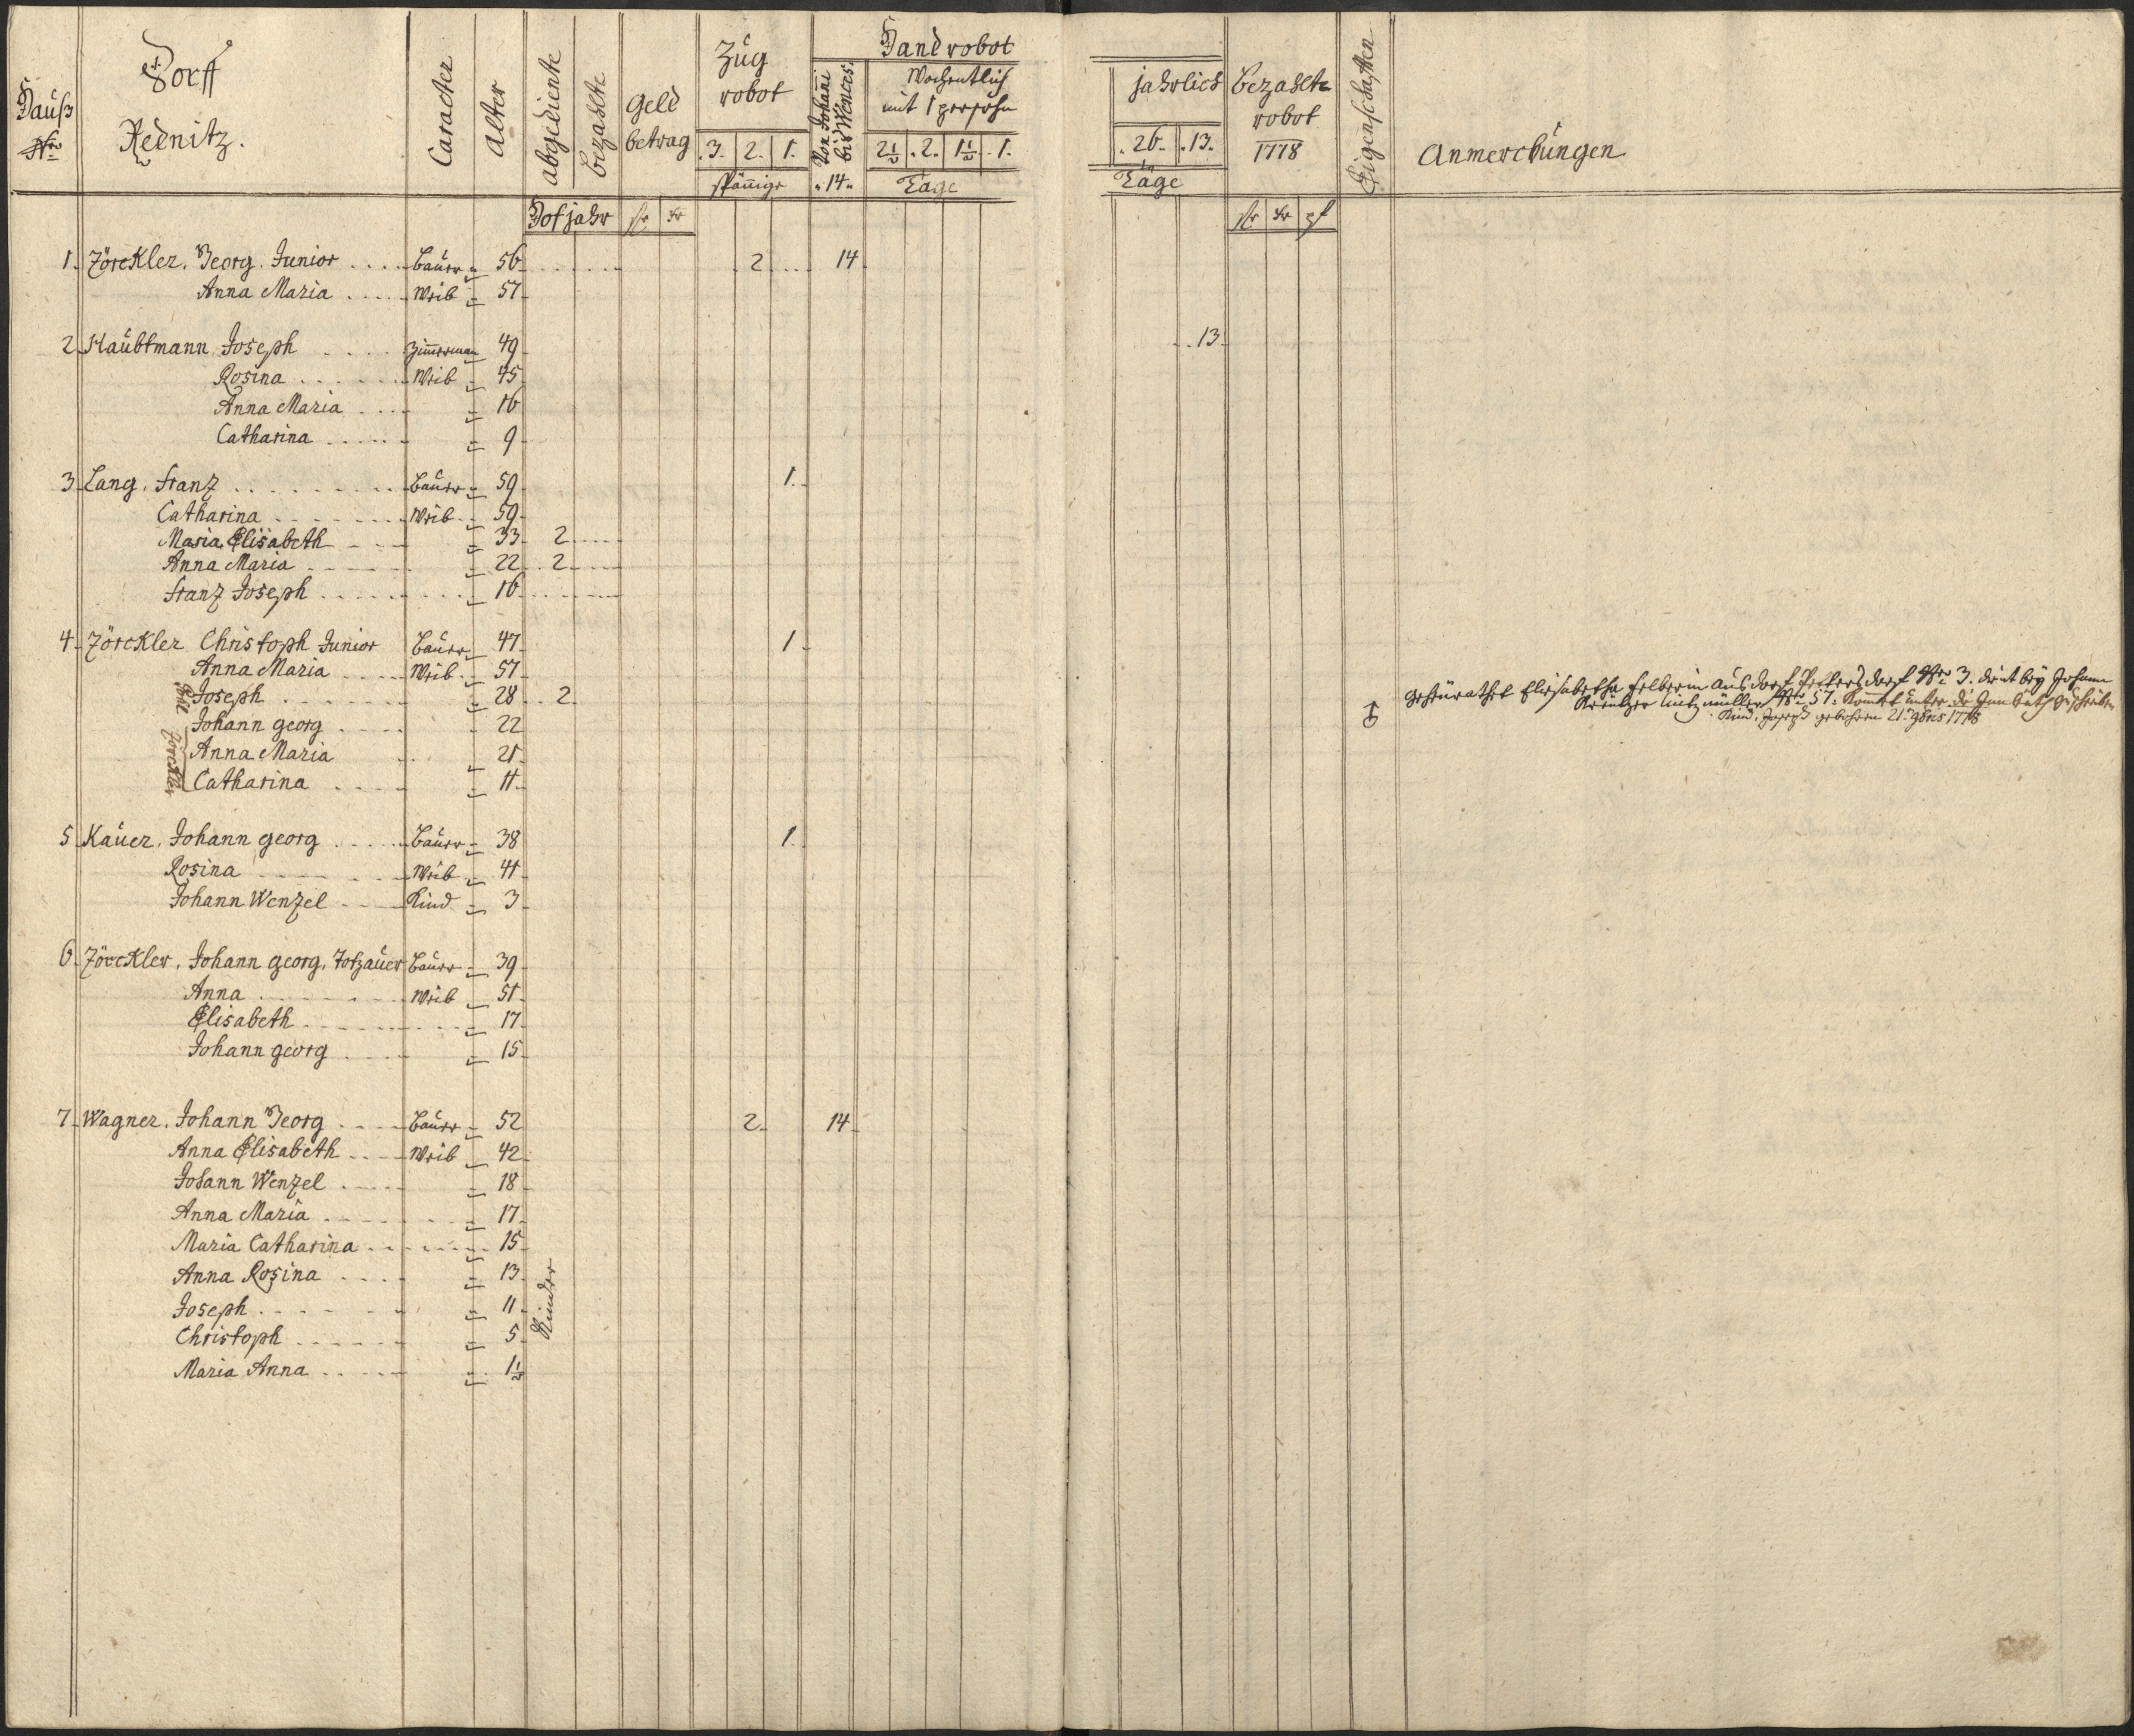 Hauß Nro
Dorff
Rednitz.
Caracter
Alter
abgediente
bezahlte
Hofjahr
Geld
betrag
fr kr
Zug
robot
3. 2. 1.
späñige
Handrobot
Von Johañi
bis Wences:
14
Wochentlich
mit 1 persohn
2½ 2. 1½ 1.
Täge
jahrlich
26. 13.
Täge
bezahlte
robot
1778
fr kr pf
Eigenschaften
Anmerckungen
1. Zörckler. Georg. Junior Bauer 56 2 14
Anna Maria Weib 57
2. Haubtmann Joseph Zimmerman 49 13
Rosina Weib 45
Anna Maria 16
Catharina 9
3. Lang. Franz Bauer 59 1.
Catharina Weib 59
Maria Elisabeth 33 2
Anna Maria 22 2
Franz Joseph 16
4. Zörckler Christoph Junior Bauer 47 1
Anna Maria Weib 57
Joseph 28 2
Johann georg 22
Anna Maria 21
Catharina 11
Zörckler
geheürathet Elisabetha Felberin aus dorf Nro 3. dient beÿ Johann
Nro 57. Kommt unter die
Kind. Joseph gebohren 21. 9bris 1778
5. Kauer. Johann georg Bauer 38 1.
Rosina Weib 41
Johann Wenzel Kind 3
6. Zörckler. Johann georg. Totzauer Bauer 39
Anna Weib 51
Elisabeth 17
Johann georg 15
7. Wagner. Johann Georg Bauer 52 2 14
Anna Elisabeth Weib 42
Johann Wenzel 18
Anna Maria 17
Maria Catharina 15
Anna Rosina 13
Joseph 11
Christoph 5
Maria Anna 1½
Kinder